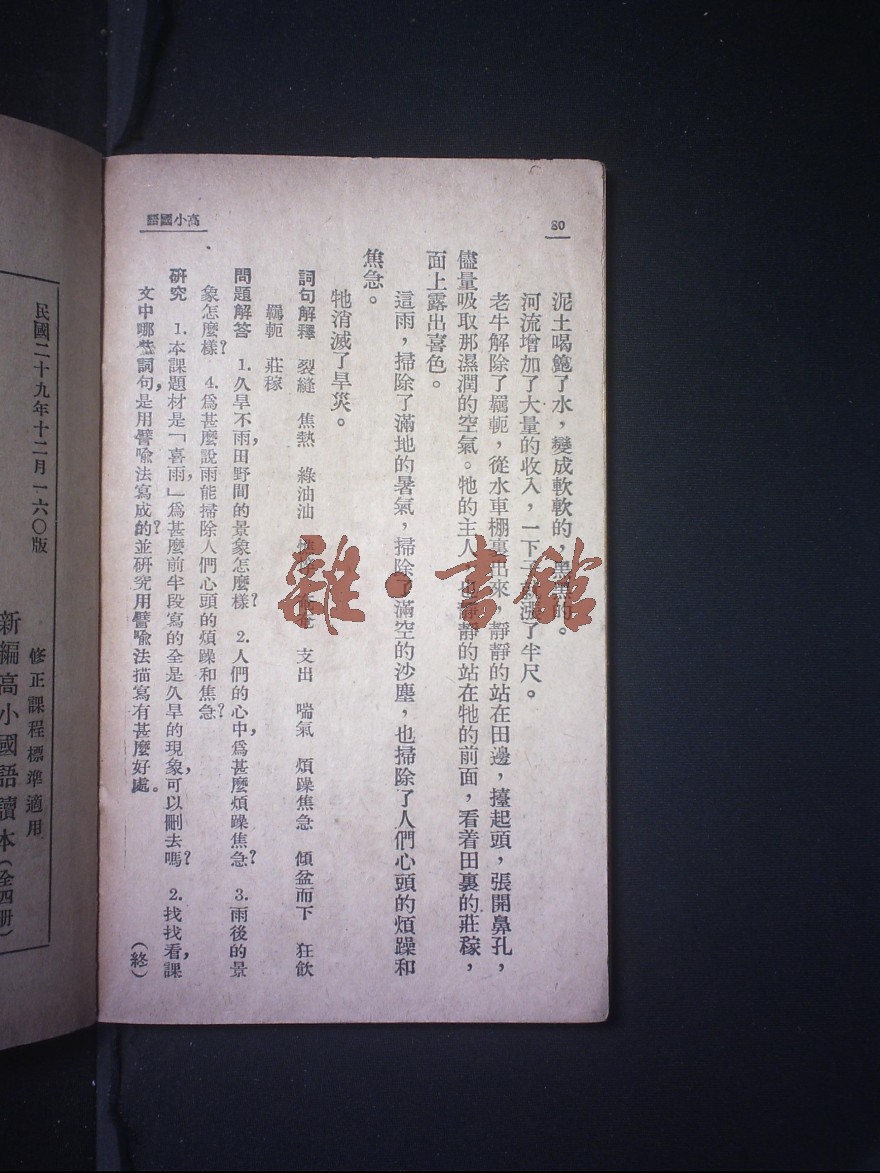 80
高小國語
泥土喝飽了水，變成軟軟的，黑黑的。
河流增加了大量的收入，一下子就漲了半尺。
老牛解除了羈軛，從水車棚裏出來，靜靜的站在田邊，擡起頭，張開鼻孔，
儘量吸取那濕潤的空氣。牠的主人也靜靜的站在牠的前面，看着田裏的莊稼，
面上露出喜色。
這雨，掃除了滿地的暑氣，掃除了滿空的沙塵，也掃除了人們心頭的煩躁和
焦急。
牠消滅了旱災。
詞句解釋 裂縫 焦熱 綠油油 支出 喘氣 煩躁焦急 傾盆而下 狂飲
羈軛 莊稼
問題解答 1.久旱不雨，田野間的景象怎麼樣？ 2.人們的心中，爲甚麼煩躁焦急？ 3.雨後的景
象怎麼樣？ 4.爲甚麼說雨能掃除人們心頭的煩躁和焦急？
研究 1.本課題材是「喜雨」，爲甚麼前半段寫的全是久旱的現象，可以刪去嗎？ 2.找找看，課
文中哪些詞句，是用譬喻法寫成的？並研究用譬喻法描寫有甚麼好處。
（終）
民國二十九年十二月一六〇版
修正課程標準適用
新編高小國語讀本（全四册）
雜·書館